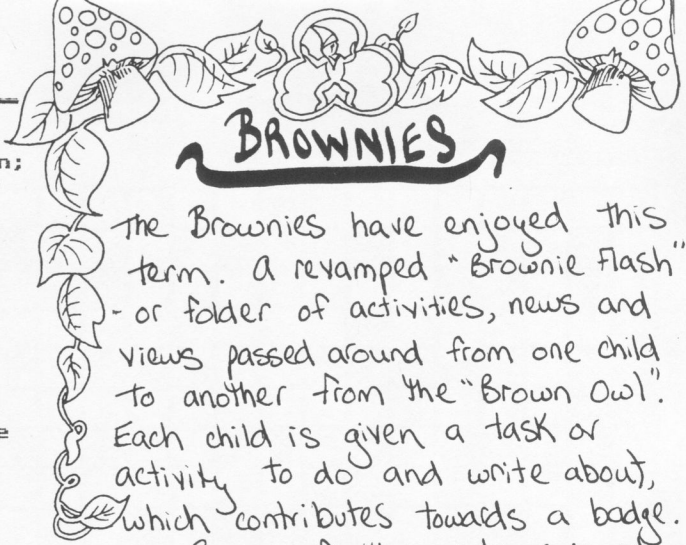 BROWNIES
n;
The Brownies have enjoyed this
term. A revamped "Brownie Flash"
- or folder of activities, news and
views passed around from one child
to another from the "Brown Owl".
e
Each child is given a task or
activity to do and write about,
which contributes towards a badge.